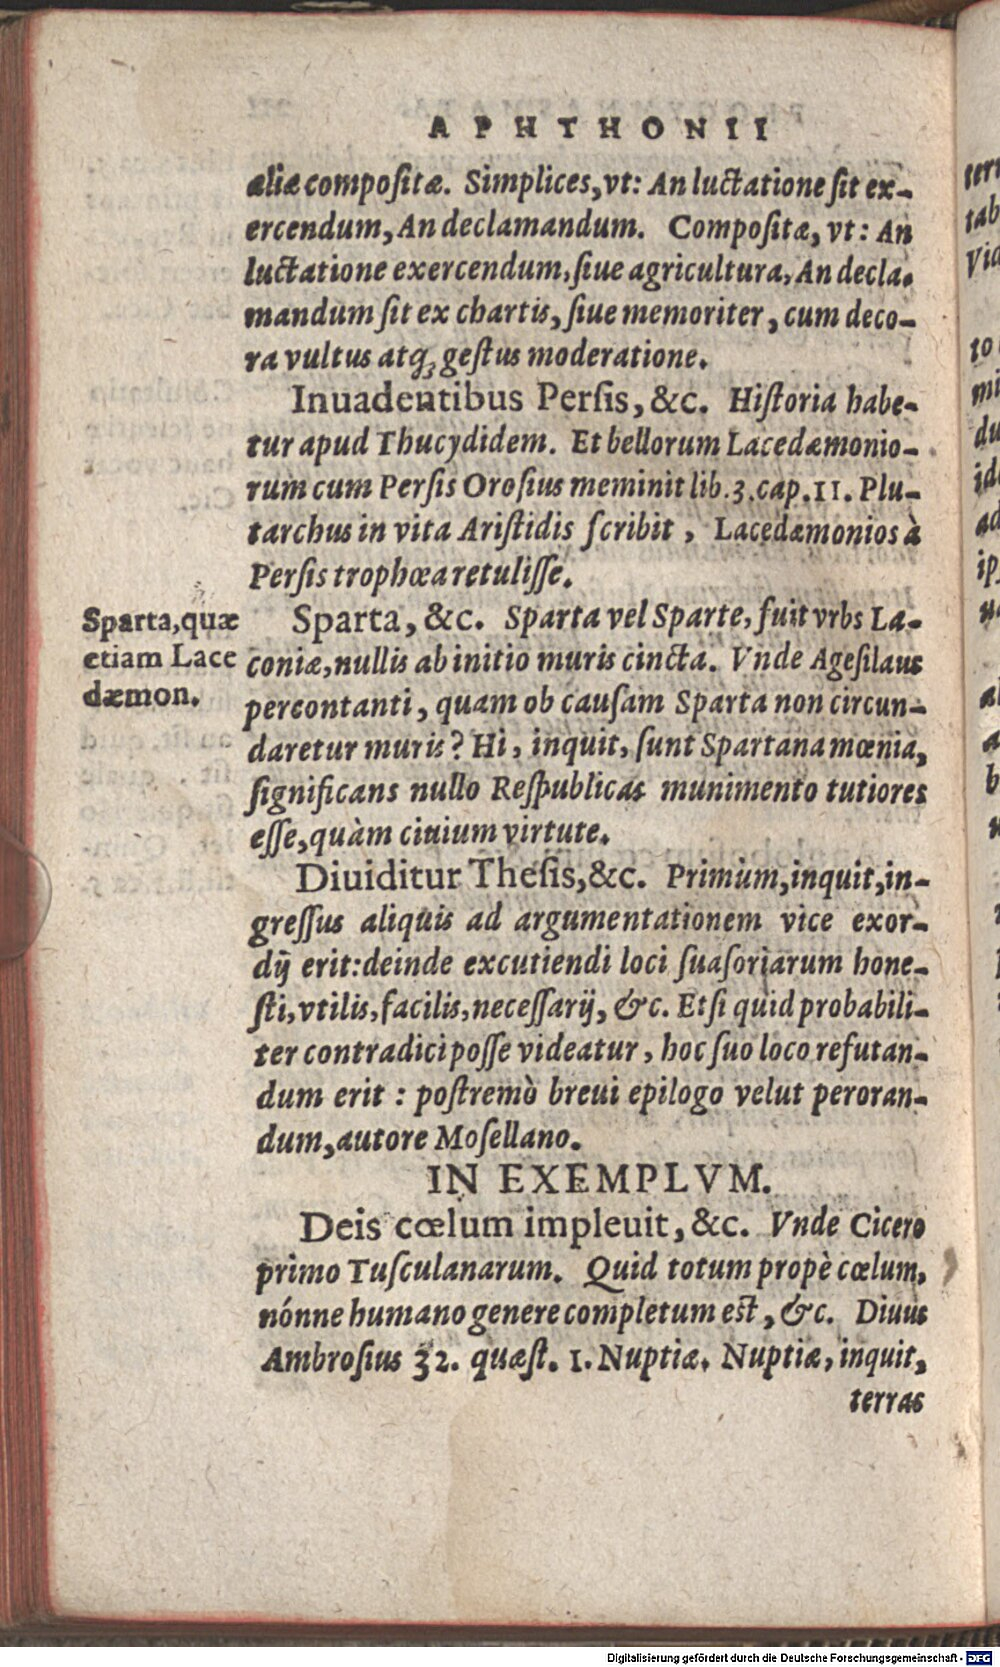 APHTHONII
aliæ compoſitæ. Simplices, vt: An luctatione ſit ex-
ercendum, An declamandum. Compoſitæ, vt: An
luctatione exercendum, ſiue agricultura, An decla-
mandum ſit ex chartis, ſiue memoriter, cum deco-
ra vultus atq; geſtus moderatione.
Inuadentibus Perſis, &c. Hiſtoria habe-
tur apud Thucydidem. Et bellorum Lacedæmonio-
rum cum Perſis Oroſius meminit lib. 3. cap. 11. Plu-
tarchus in vita Ariſtidis ſcribit, Lacedæmonios à
Perſis trophœa retuliſſe.
Sparta, quæ
etiam Lace
dæmon.
Sparta, &c. Sparta vel Sparte, fuit vrbs La-
coniæ, nullis ab initio muris cincta. Vnde Ageſilaus
percontanti, quam ob cauſam Sparta non circun-
daretur muris? Hi, inquit, ſunt Spartana mœnia,
ſignificans nullo Reſpublicas munimento tutiores
eſſe, quàm ciuium virtute.
Diuiditur Theſis, &c. Primùm, inquit, in-
greſſus aliquis ad argumentationem vice exor-
dij erit: deinde excutiendi loci ſuaſoriarum hone-
ſti, vtilis, facilis, neceſſarij, &c. Et ſi quid probabili-
ter contradici poſſe videatur, hoc ſuo loco refutan-
dum erit : poſtremò breui epilogo velut peroran-
dum, autore Moſellano.
IN EXEMPLVM.
Deis cœlum impleuit, &c. Vnde Cicero
primo Tuſculanarum. Quid totum propè cœlum,
nónne humano genere completum eſt, &c. Diuus
Ambroſius 32. quæſt. 1. Nuptiæ. Nuptiæ, inquit,
terras
Digitalisierung gefördert durch die Deutsche Forschungsgemeinschaft - DFG